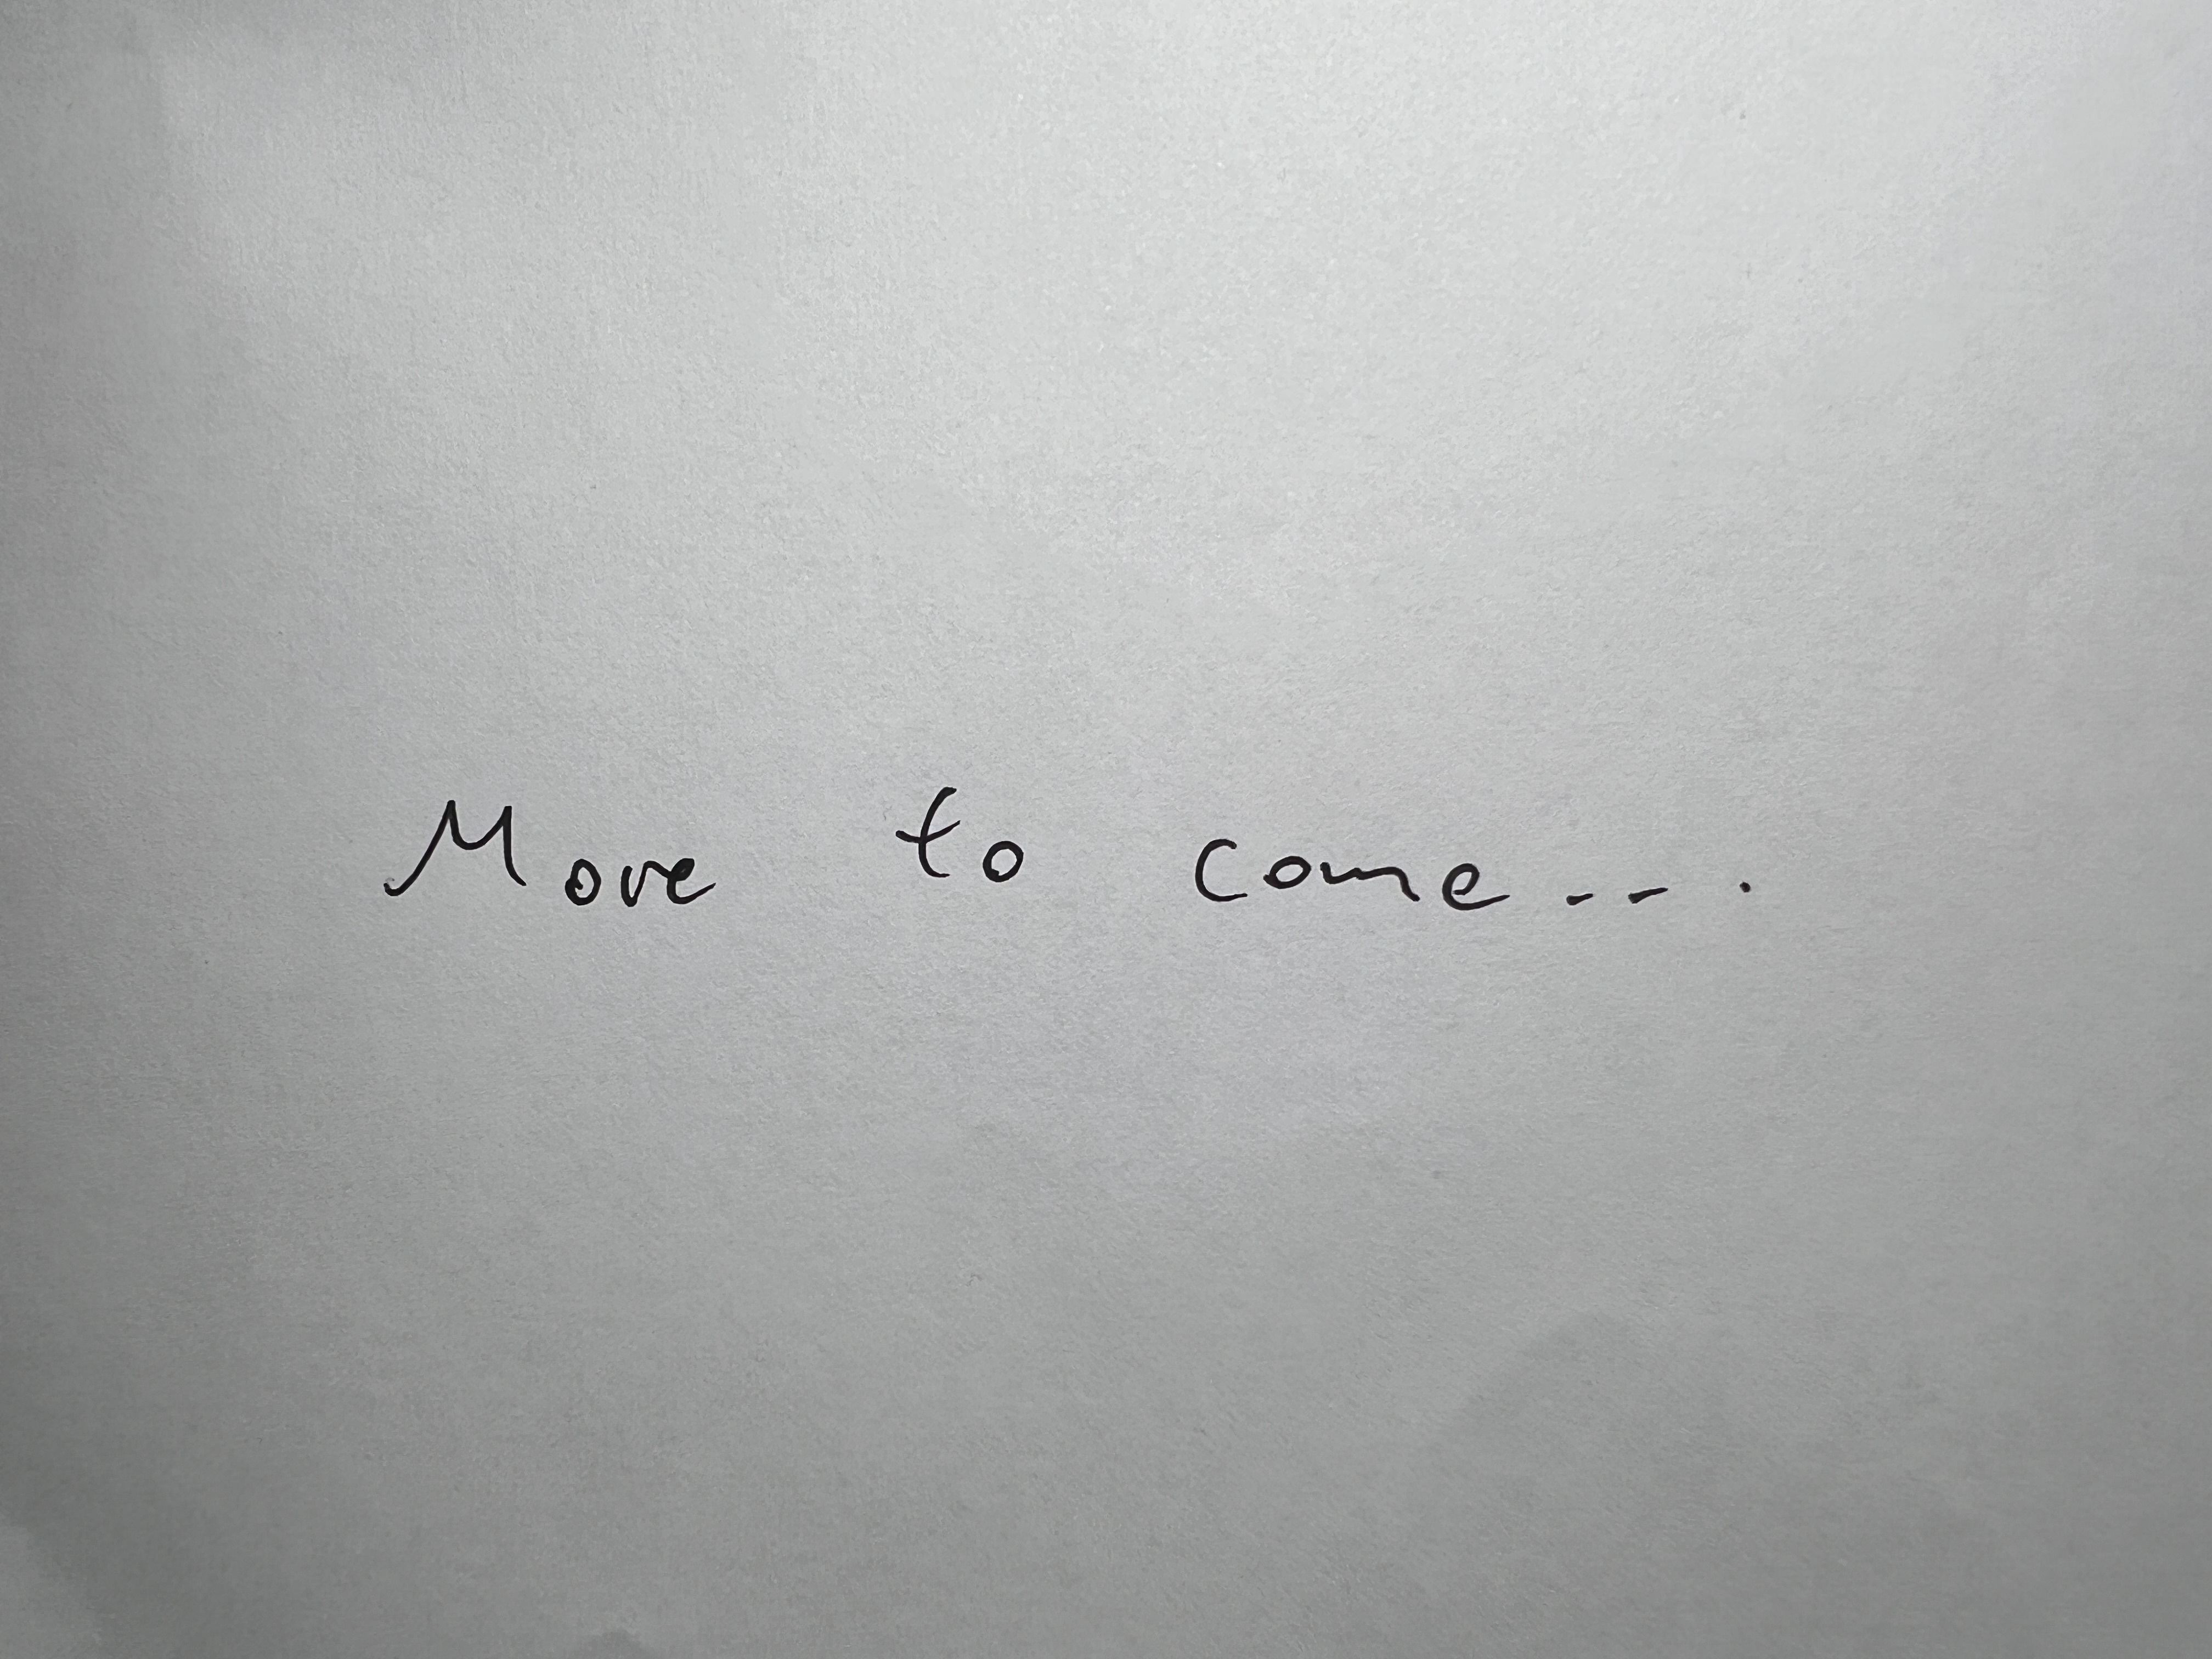 More to come...